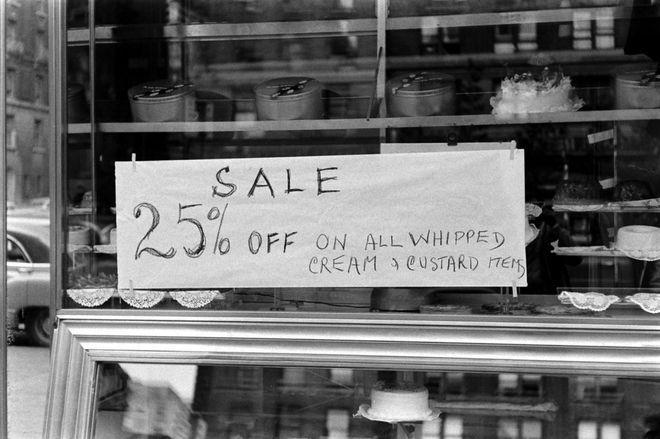 SALE
25% OFF ON ALL WHIPPED
CREAM & CUSTARD ITEMS